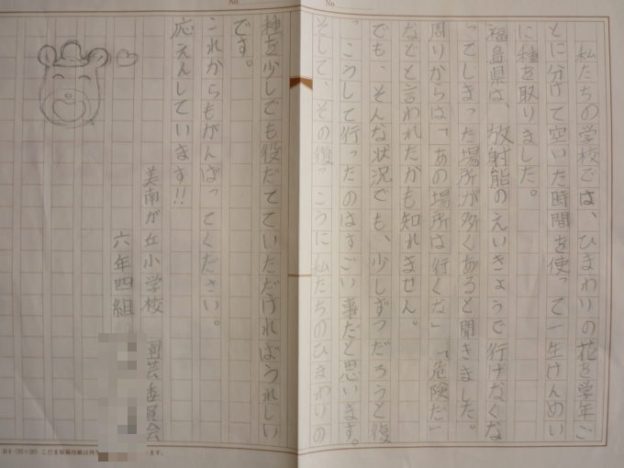 私たちの学校では、ひまわりの花を学年ご
とに分けて空いた時間を使って一生けんめい
に種を取りました。
福島県は、放射能のえいきょうで行けなくな
ってしまった場所が多くあると聞きました。
周りからは「あの場所は行くな」「危険だ」
などと言われたかも知れません。
でも、そんな状況でも、少しずつだろうと復
こうして行ったのはすごい事だと思います。
そして、その復こうに私たちのひまわりの
種を少しでも役だてていただければうれしい
です。
これからもがんばってください。
応えんしています!!
美南が丘小学校 園芸委員会
六年四組